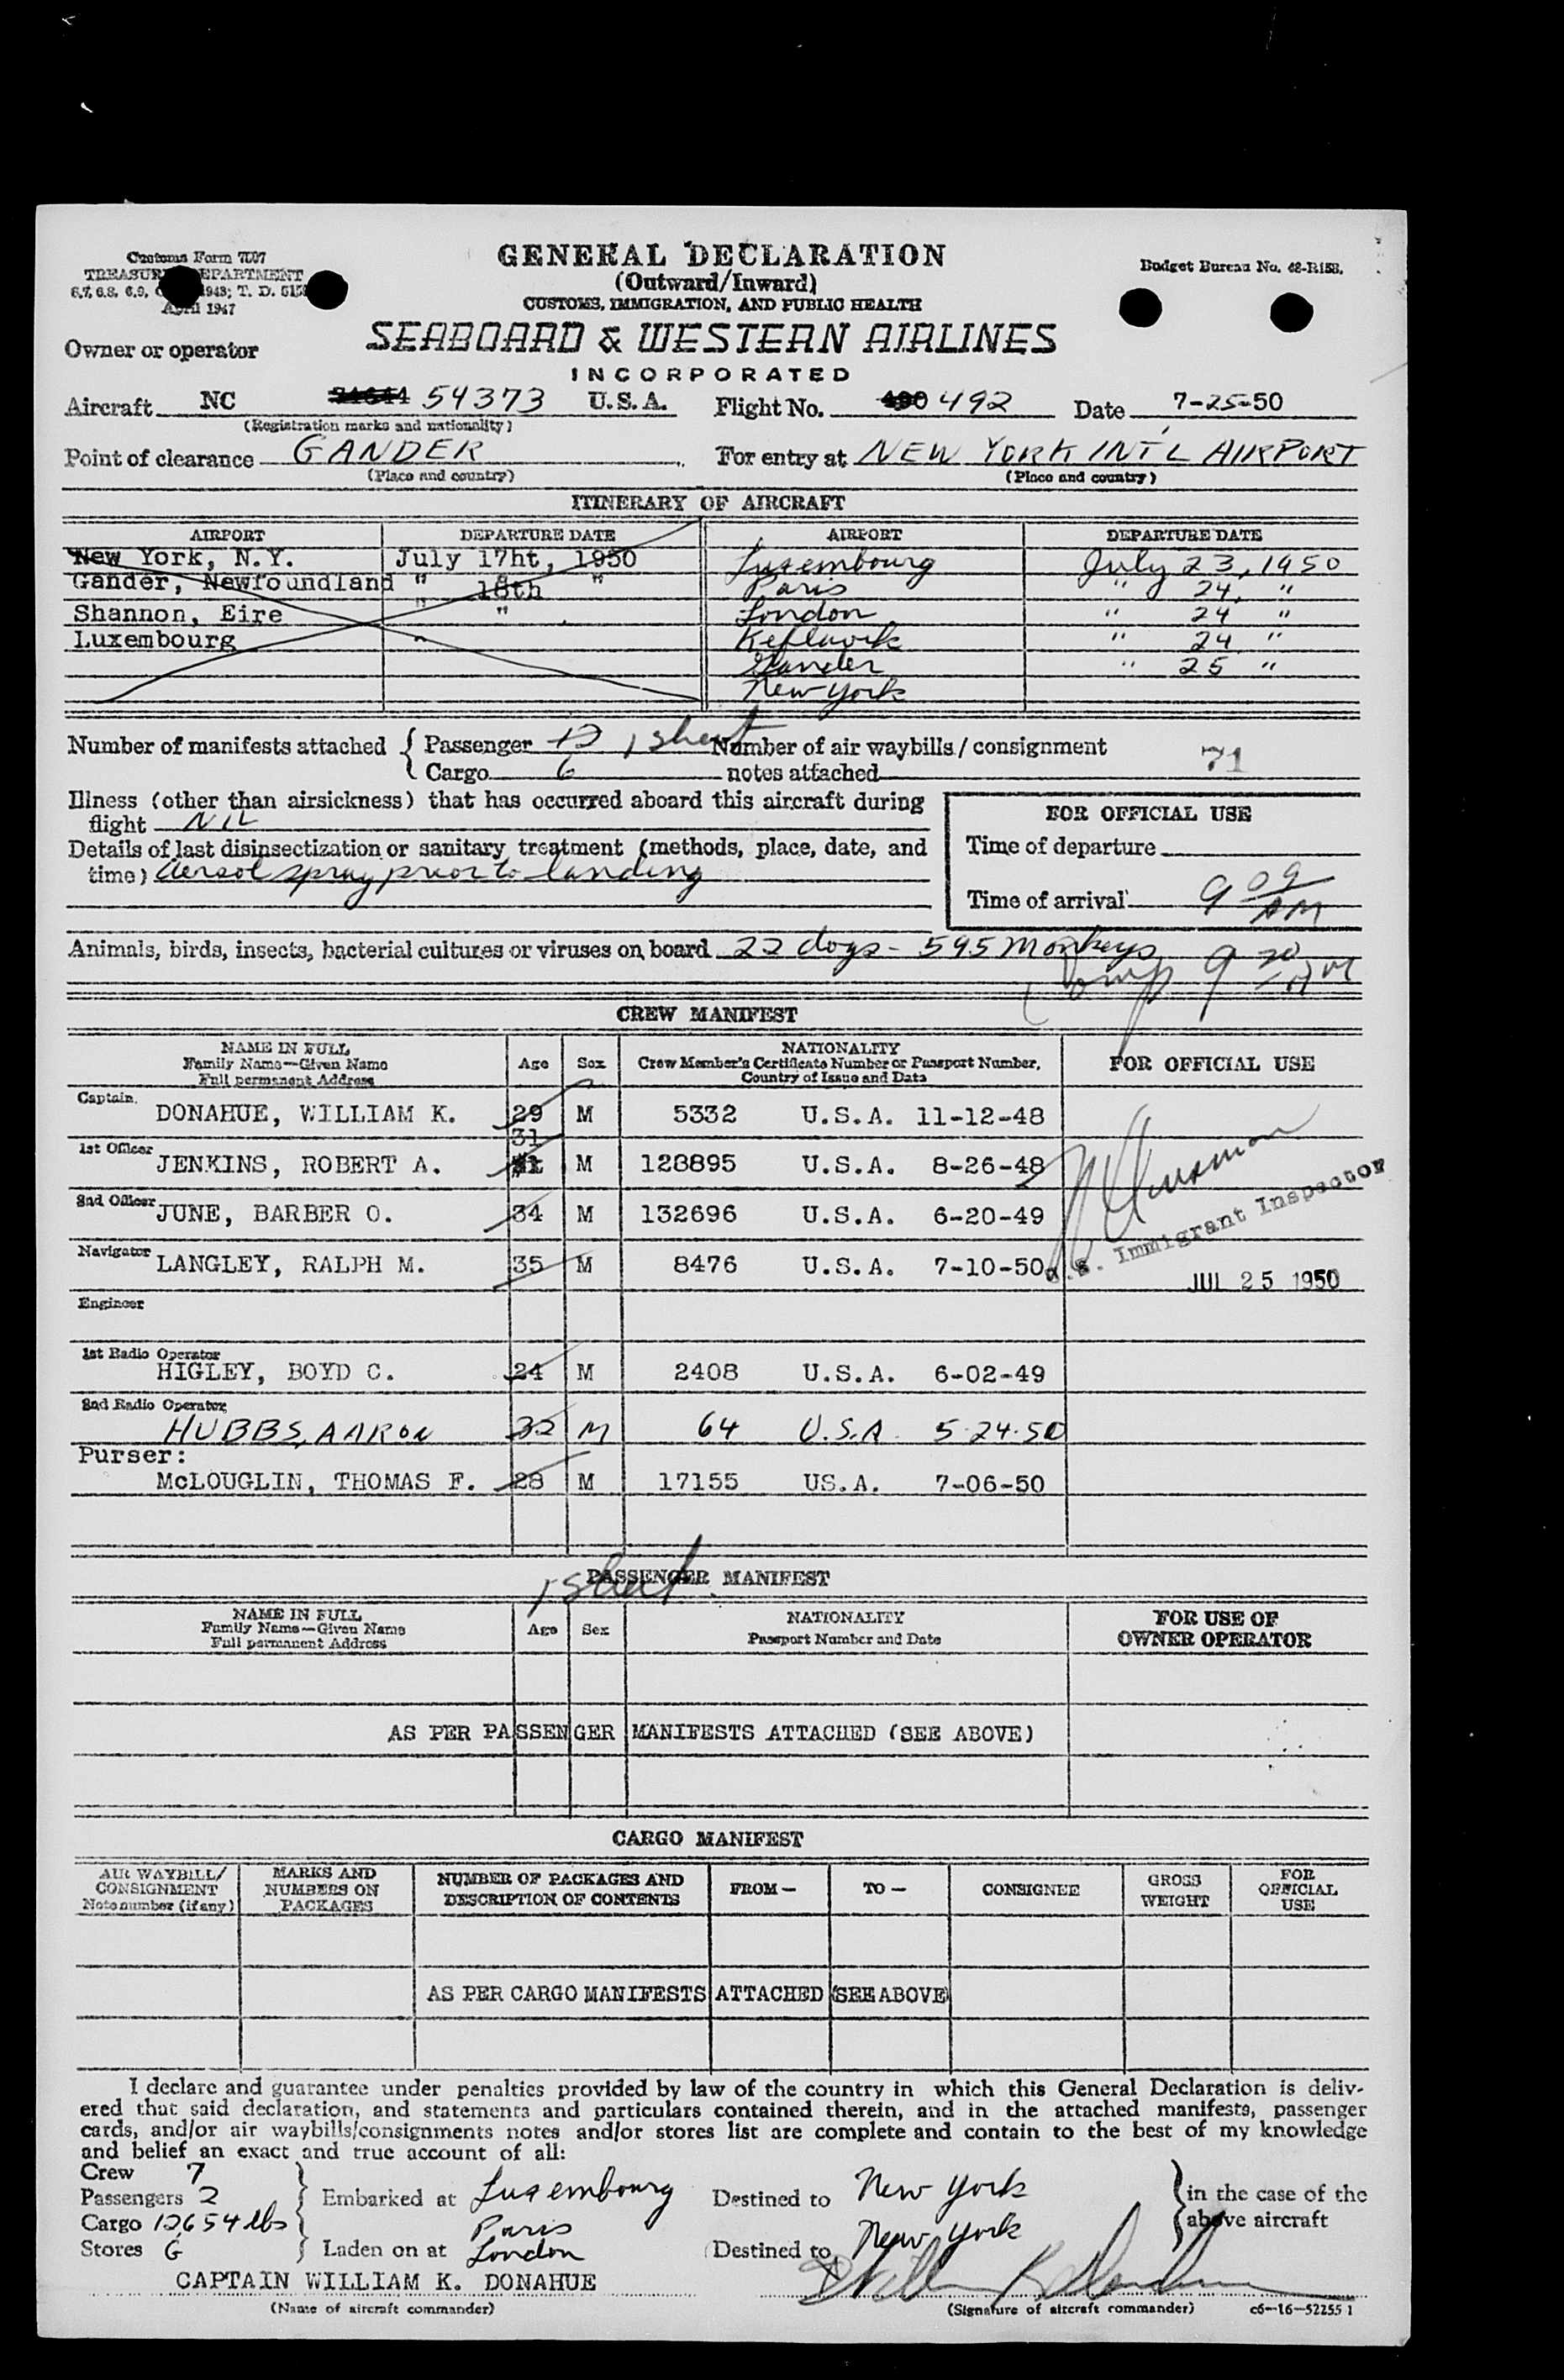 Customs Form 7507
TREASURY DEPARTMENT
6.7, 6.8, 6.9, 1943; T. D.
April 1947
GENERAL DECLARATION
(Outward/Inward)
CUSTOMS, IMMIGRATION, AND PUBLIC HEALTH
Budget Bureau No. 48-R158.
SEABOARD & WESTERN AIRLINES
INCORPORATED
Owner or operator
Aircraft NC 54373 U.S.A. Flight No. 492 Date 7-25-50
(Registration marks and nationality)
Point of clearance GANDER For entry at NEW YORK INT'L AIRPORT
(Place and country) (Place and country)
ITINERARY OF AIRCRAFT
AIRPORT DEPARTURE DATE AIRPORT DEPARTURE DATE
New York, N.Y. July 17ht, 1950 Luxembourg July 23, 1950
Gander, Newfoundland " 18th " Paris " 24, "
Shannon, Eire " " London " 24 "
Luxembourg " Keflavik " 24 "
Gander " 25 "
New York
Number of manifests attached { Passenger 1 sheet Number of air waybills/consignment 71
Cargo 6 notes attached
Illness (other than airsickness) that has occurred aboard this aircraft during
flight NIL
FOR OFFICIAL USE
Details of last disinsectization or sanitary treatment (methods, place, date, and
time) Aerosol spray prior to landing
Time of departure
Time of arrival 9 09 AM
Animals, birds, insects, bacterial cultures or viruses on board 22 dogs - 595 Monkeys
Comp 9 30 AM
CREW MANIFEST
NAME IN FULL
Family Name—Given Name
Full permanent Address
Age Sex
NATIONALITY
Crew Member's Certificate Number or Passport Number,
Country of Issue and Data
FOR OFFICIAL USE
Captain DONAHUE, WILLIAM K. 29 M 5332 U.S.A. 11-12-48
31
1st Officer JENKINS, ROBERT A. M 128895 U.S.A. 8-26-48
2nd Officer JUNE, BARBER O. 34 M 132696 U.S.A. 6-20-49
Immigrant Inspector
Navigator LANGLEY, RALPH M. 35 M 8476 U.S.A. 7-10-50
JUL 25 1950
Engineer
1st Radio Operator
HIGLEY, BOYD C. 24 M 2408 U.S.A. 6-02-49
2nd Radio Operator
HUBBS, AARON 32 M 64 U.S.A. 5-24-50
Purser:
McLOUGLIN, THOMAS F. 28 M 17155 US.A. 7-06-50
1 sheet
PASSENGER MANIFEST
NAME IN FULL
Family Name—Given Name
Full permanent Address
Age Sex
NATIONALITY
Passport Number and Date
FOR USE OF
OWNER OPERATOR
AS PER PASSENGER MANIFESTS ATTACHED (SEE ABOVE)
CARGO MANIFEST
AIR WAYBILL/
CONSIGNMENT
Note number (if any)
MARKS AND
NUMBERS ON
PACKAGES
NUMBER OF PACKAGES AND
DESCRIPTION OF CONTENTS
FROM— TO— CONSIGNEE
GROSS
WEIGHT
FOR
OFFICIAL
USE
AS PER CARGO MANIFESTS ATTACHED (SEE ABOVE)
I declare and guarantee under penalties provided by law of the country in which this General Declaration is deliv-
ered that said declaration, and statements and particulars contained therein, and in the attached manifests, passenger
cards, and/or air waybills/consignments notes and/or stores list are complete and contain to the best of my knowledge
and belief an exact and true account of all:
Crew 7
Passengers 2 Embarked at Luxembourg Destined to New York in the case of the
Cargo 12654 lbs Paris above aircraft
Stores G Laden on at London Destined to New York
CAPTAIN WILLIAM K. DONAHUE William K Donahue
(Name of aircraft commander) (Signature of aircraft commander) c6—16—52255 1